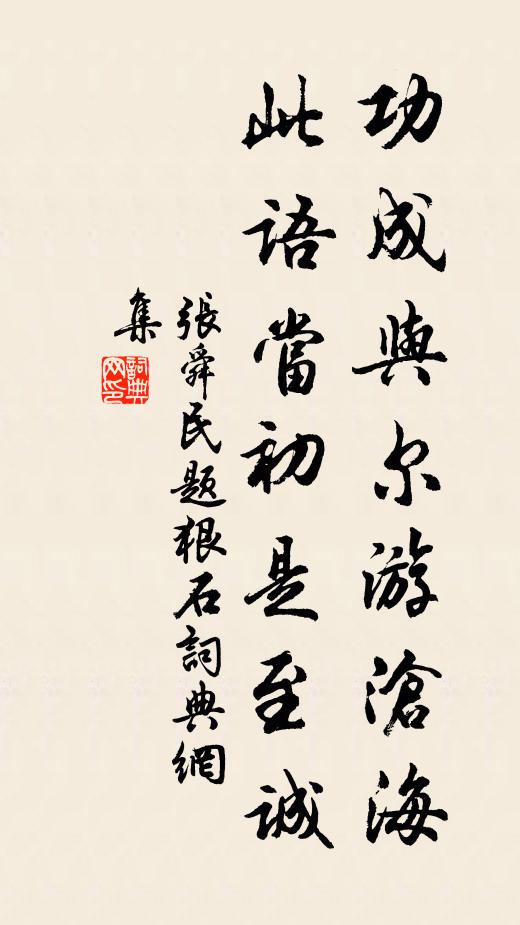 功成與尔游滄海
此語當初是至誠
張舜民題狠石詞典網
集
詞典
网印